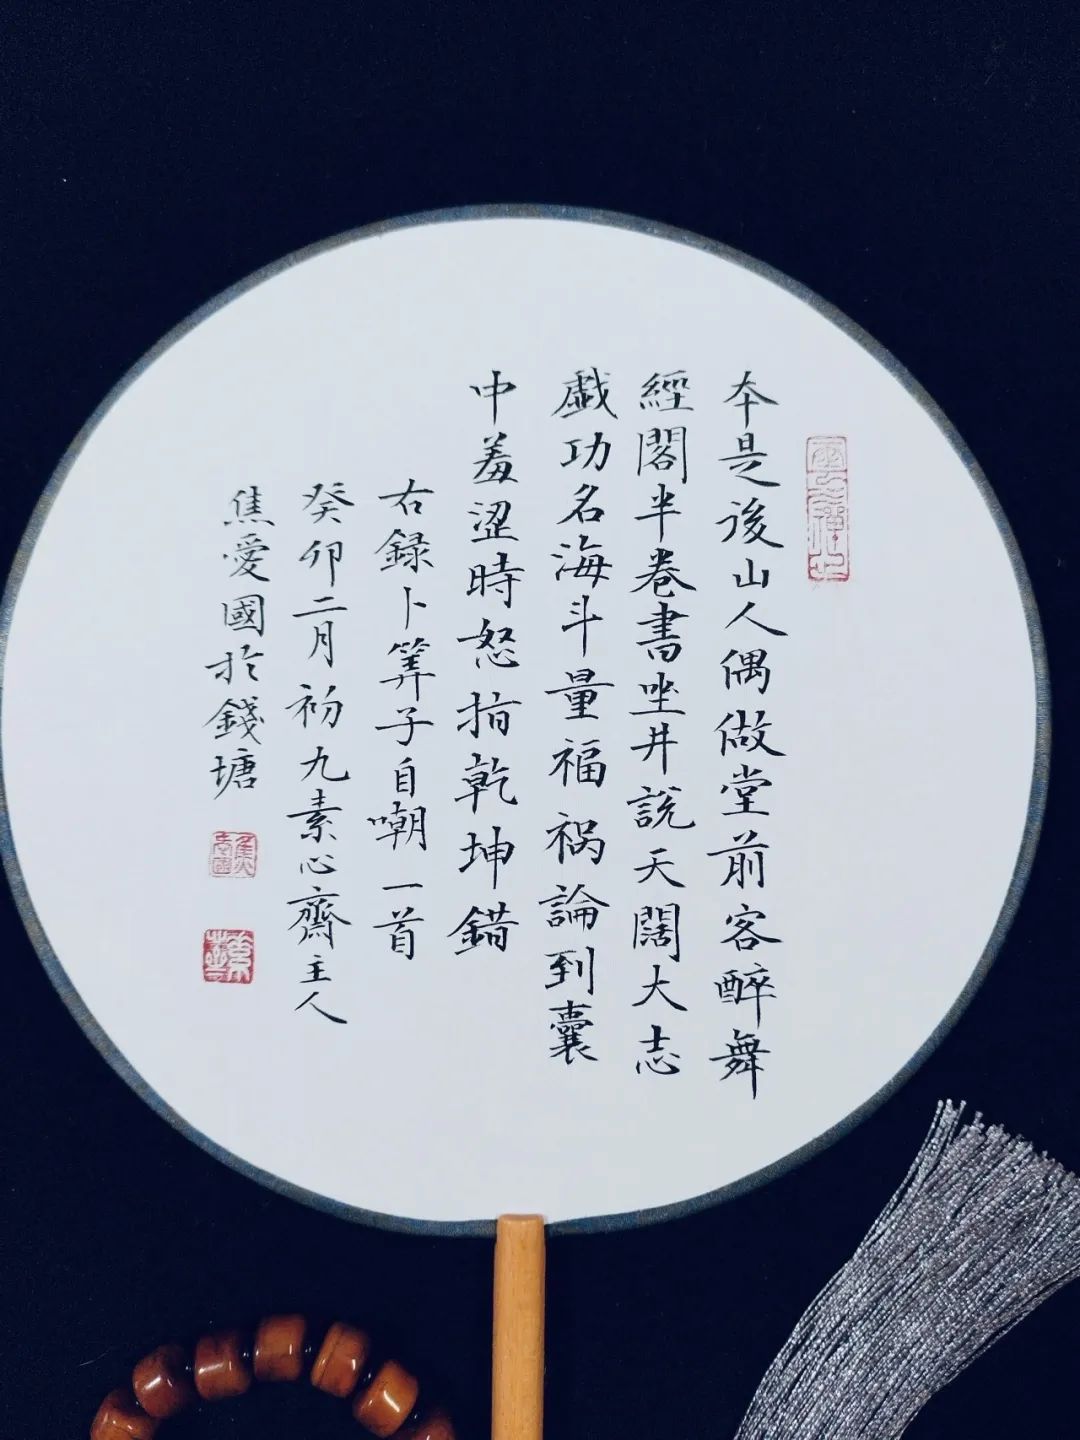 本是後山人偶做堂前客醉舞
經閣半卷書坐井說天闊大志
戲功名海斗量福禍論到囊
中羞澀時怒指乾坤錯
右録卜算子自嘲一首
癸卯二月初九素心齋主人
焦愛國於錢塘